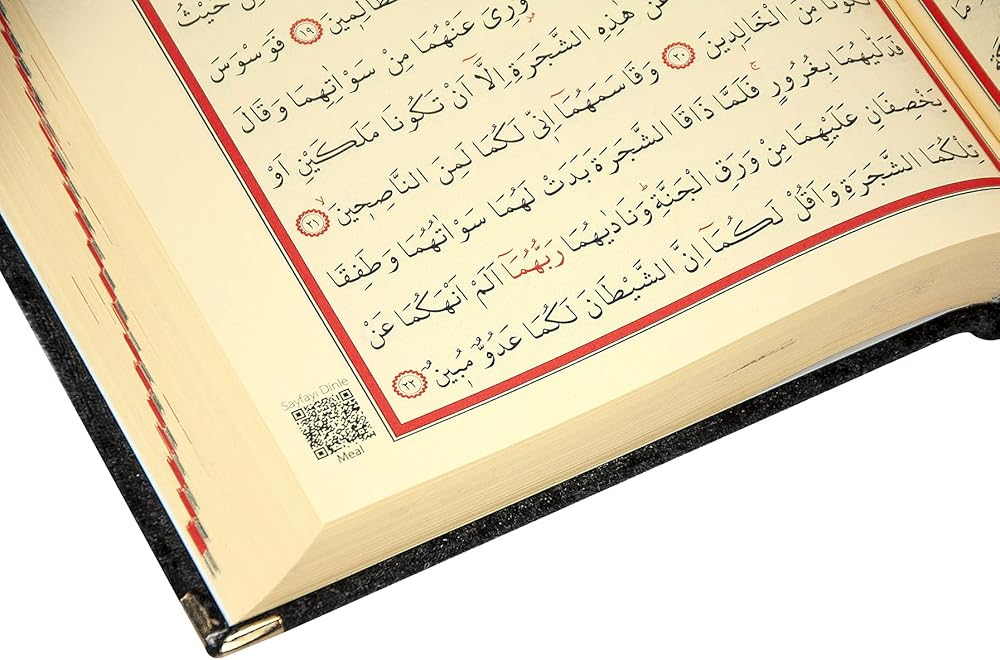 حَيْثُ
الظَّالِمِينَ ﴿١٩﴾ فَوَسْوَسَ
وُرِيَ عَنْهُمَا مِنْ سَوْاٰتِهِمَا وَقَالَ
عَنْ هٰذِهِ الشَّجَرَةِ اِلَّٓا اَنْ تَكُونَا مَلَكَيْنِ اَوْ
تَكُونَا مِنَ الْخَالِدِينَ ﴿٢٠﴾ وَقَاسَمَهُمَٓا اِنِّي لَكُمَا لَمِنَ النَّاصِحِينَ ﴿٢١﴾
فَدَلّٰيهُمَا بِغُرُورٍ فَلَمَّا ذَاقَا الشَّجَرَةَ بَدَتْ لَهُمَا سَوْاٰتُهُمَا وَطَفِقَا
يَخْصِفَانِ عَلَيْهِمَا مِنْ وَرَقِ الْجَنَّةِ وَنَادٰيهُمَا رَبُّهُمَٓا اَلَمْ اَنْهَكُمَا عَنْ
تِلْكُمَا الشَّجَرَةِ وَاَقُلْ لَكُمَٓا اِنَّ الشَّيْطَانَ لَكُمَا عَدُوٌّ مُبِينٌ ﴿٢٢﴾
Sayfayı Dinle
Meal